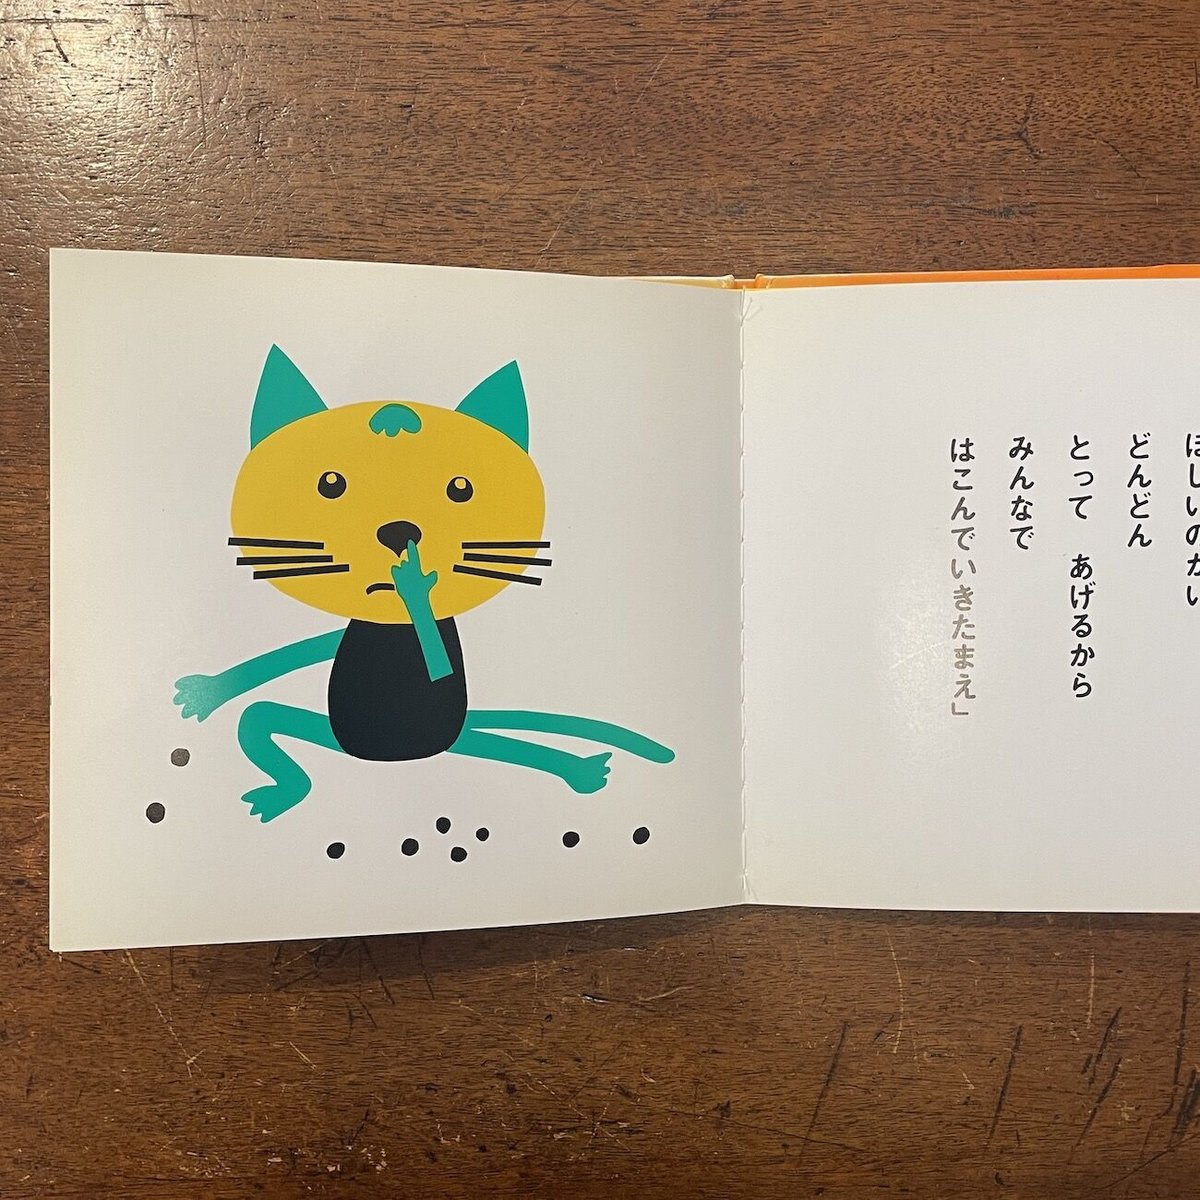 ほしいのかい
どんどん
とって あげるから
みんなで
はこんでいきたまえ」